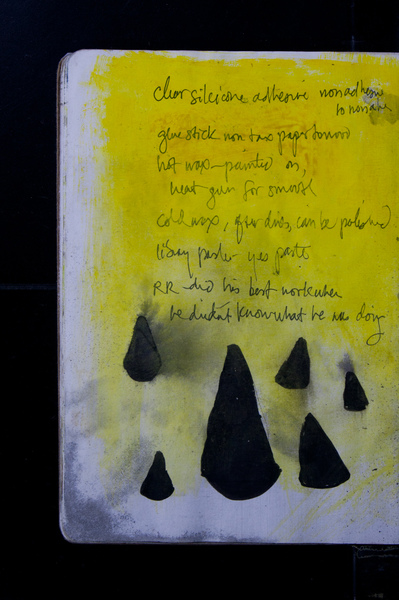 clear silicone adhesive nonadhesive
to nonstick
glue stick non tax paper to wood
hot wax - painted on,
heat gun for smooth
cold wax, after dries, can be polished
library paste - yes paste
RR did his best work when
he didn't know what he was doing